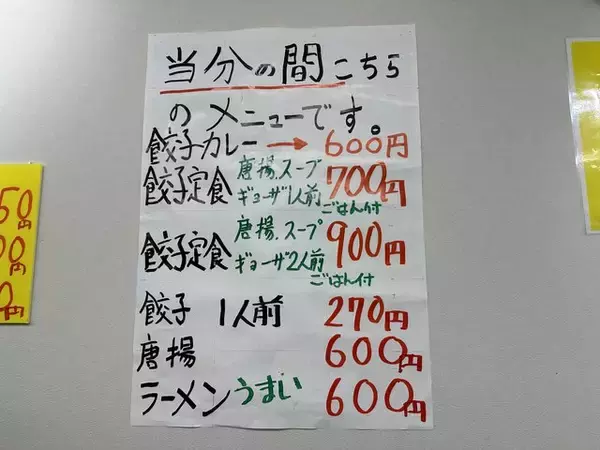 当分の間こちら
のメニューです。
餃子カレー→600円
餃子定食 唐揚.スープ ギョーザ1人前 ごはん付 700円
餃子定食 唐揚.スープ ギョーザ2人前 ごはん付 900円
餃子 1人前 270円
唐揚 600円
ラーメンうまい 600円
50円
00円
0円